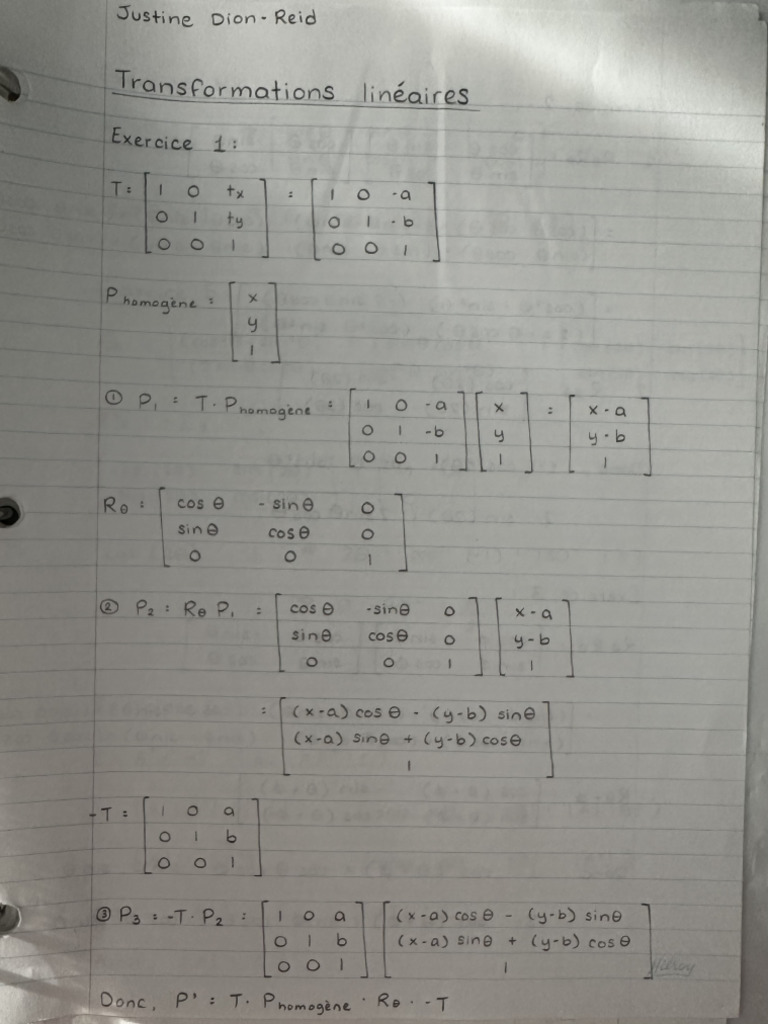 Justine Dion-Reid
Transformations linéaires
Exercice 1:
T = [ 1 0 tx ] = [ 1 0 -a ]
[ 0 1 ty ] [ 0 1 -b ]
[ 0 0 1 ] [ 0 0 1 ]
P homogène = [ x ]
[ y ]
[ 1 ]
① P₁ = T · P homogène = [ 1 0 -a ] [ x ] = [ x-a ]
[ 0 1 -b ] [ y ] [ y-b ]
[ 0 0 1 ] [ 1 ] [ 1 ]
Rθ = [ cos θ - sin θ 0 ]
[ sin θ cos θ 0 ]
[ 0 0 1 ]
② P₂ = Rθ P₁ = [ cos θ -sin θ 0 ] [ x-a ]
[ sin θ cos θ 0 ] [ y-b ]
[ 0 0 1 ] [ 1 ]
= [ (x-a) cos θ - (y-b) sin θ ]
[ (x-a) sin θ + (y-b) cos θ ]
[ 1 ]
-T = [ 1 0 a ]
[ 0 1 b ]
[ 0 0 1 ]
③ P₃ = -T · P₂ = [ 1 0 a ] [ (x-a) cos θ - (y-b) sin θ ]
[ 0 1 b ] [ (x-a) sin θ + (y-b) cos θ ]
[ 0 0 1 ] [ 1 ]
Donc, P' = T · P homogène · Rθ · -T